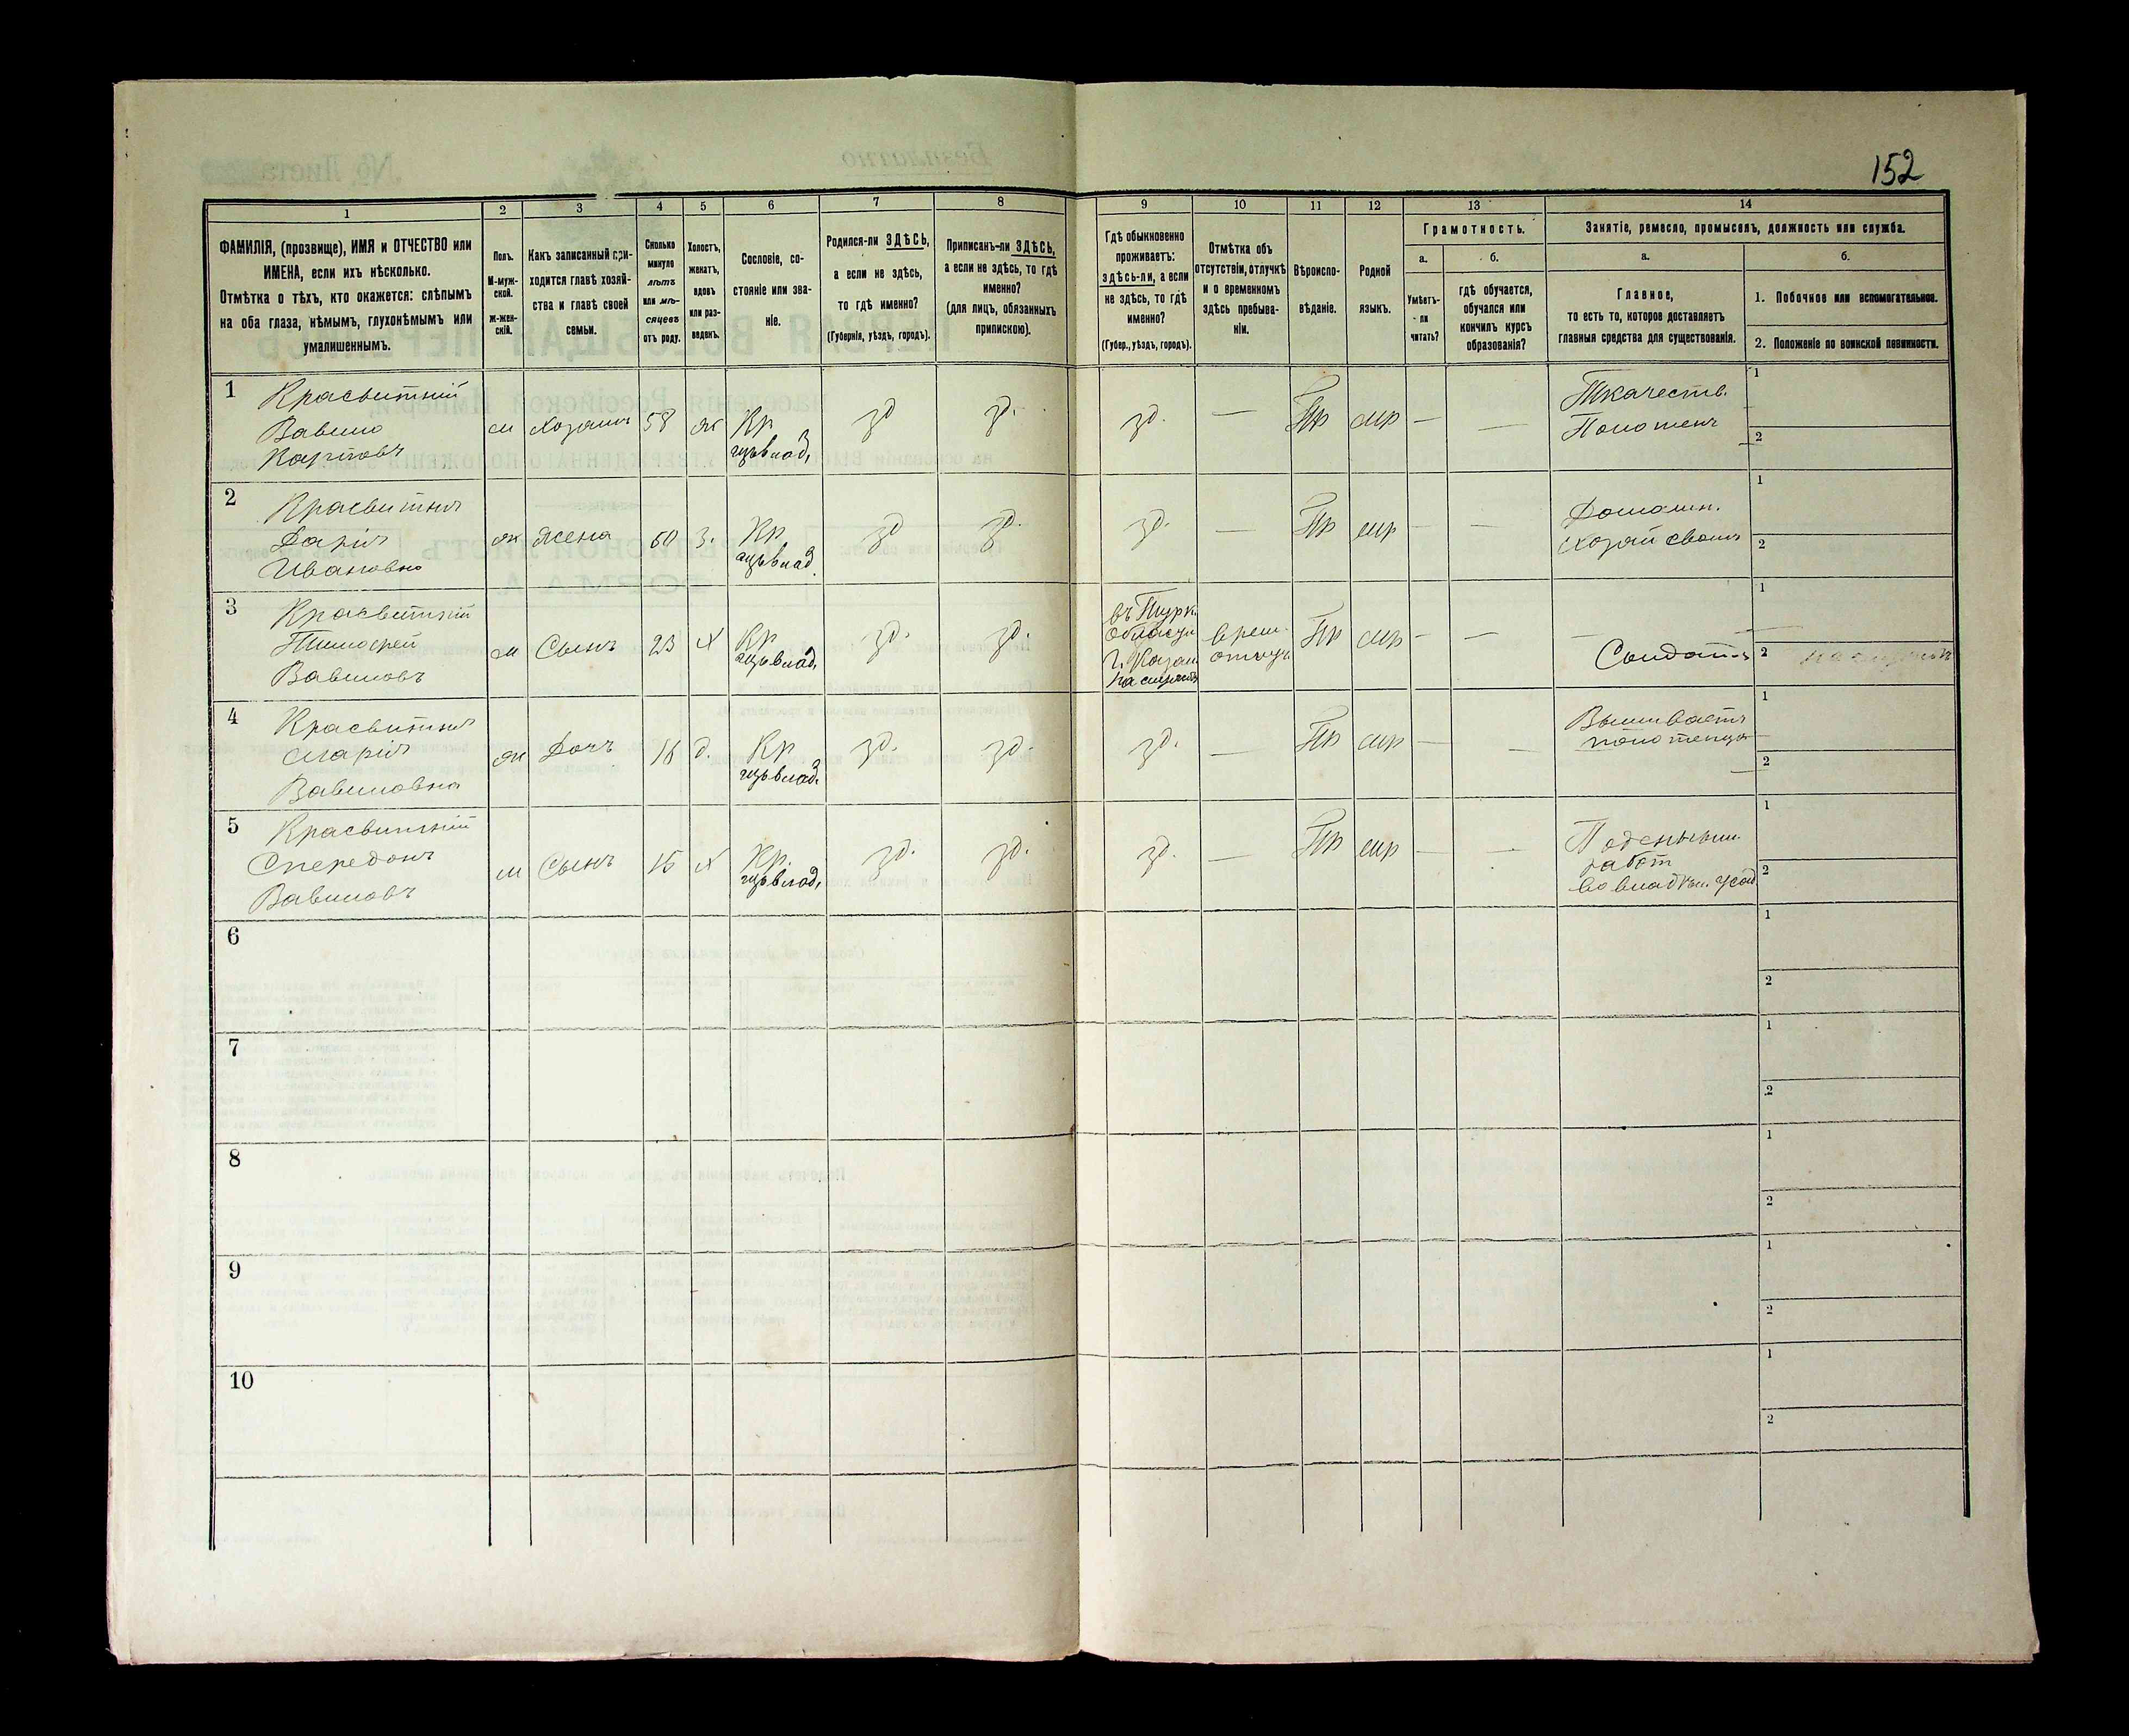 152
1
2
3
4
5
6
7
8
9
10
11
12
13
14
ФАМИЛІЯ, (прозвище), ИМЯ и ОТЧЕСТВО или
ИМЕНА, если ихъ нѣсколько.
Отмѣтка о тѣхъ, кто окажется: слѣпымъ
на оба глаза, нѣмымъ, глухонѣмымъ или
умалишеннымъ.
Полъ.
М-муж-
ской.
Ж-жен-
скій.
Какъ записанный при-
ходится главѣ хозяй-
ства и главѣ своей
семьи.
Сколько
минуло
лѣтъ
или мѣ-
сяцевъ
отъ роду.
Холостъ,
женатъ,
вдовъ
или раз-
веденъ.
Сословіе, со-
стояніе или зва-
ніе.
Родился-ли ЗДѢСЬ,
а если не здѣсь,
то гдѣ именно?
(Губернія, уѣздъ, городъ).
Приписанъ-ли ЗДѢСЬ,
а если не здѣсь, то гдѣ
именно?
(для лицъ, обязанныхъ
припискою).
Гдѣ обыкновенно
проживаетъ:
ЗДѢСЬ-ли, а если
не здѣсь, то гдѣ
именно?
(Губер., уѣздъ, городъ).
Отмѣтка объ
отсутствіи, отлучкѣ
и о временномъ
здѣсь пребыва-
ніи.
Вѣроиспо-
вѣданіе.
Родной
языкъ.
Грамотность.
а.
Умѣетъ-
ли
читать?
б.
гдѣ обучается,
обучался или
кончилъ курсъ
образованія?
Занятіе, ремесло, промыселъ, должность или служба.
а.
Главное,
то есть то, которое доставляетъ
главныя средства для существованія.
б.
1. Побочное или вспомогательное.
2. Положеніе по воинской повинности.
1
Красвитній
Вавило
Карповъ
м
Хозяинъ
58
ж
Кр
зд
зд.
зд.
—
Пр
мр
—
—
Ткачеств.
Полотенъ
1
2
2
Красвитня
Дарія
Ивановна
ж
Жена
60
з.
Кр
зд
зд.
зд.
—
Пр
мр
—
—
Домашн.
1
2
3
Красвитній
Тимофей
Вавиловъ
м
Сынъ
23
х
Кр
зд.
зд.
въ Турк.
области
г. Казан
на службѣ
врем.
отлуч.
Пр
мр
—
—
—
Солдатъ
1
2
4
Красвитня
Марія
Вавиловна
ж
Дочь
18
д.
Кр
зд.
зд.
зд.
—
Пр
мр
—
—
Вышиваетъ
полотенца
1
2
5
Красвитній
Спередонъ
Вавиловъ
м
Сынъ
15
х
Кр.
зд.
зд.
зд.
—
Пр
мр
—
—
Поденным
работ
1
2
6
1
2
7
1
2
8
1
2
9
1
2
10
1
2